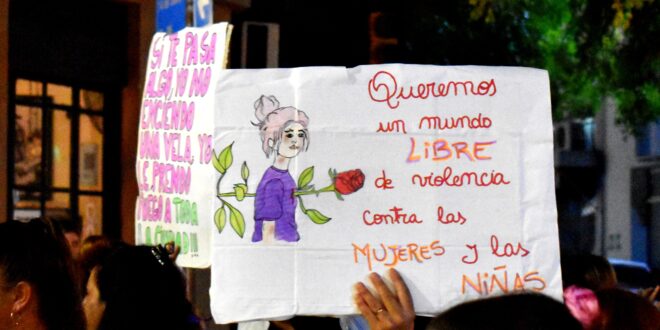 SI TE PASA
ALGO, YO NO
ENCIENDO
UNA VELA, YO
LE PRENDO
FUEGO A TODA
LA CIUDAD!!
Queremos
un mundo
LIBRE
de violencia
contra las
MUJERES y las
NIÑAS